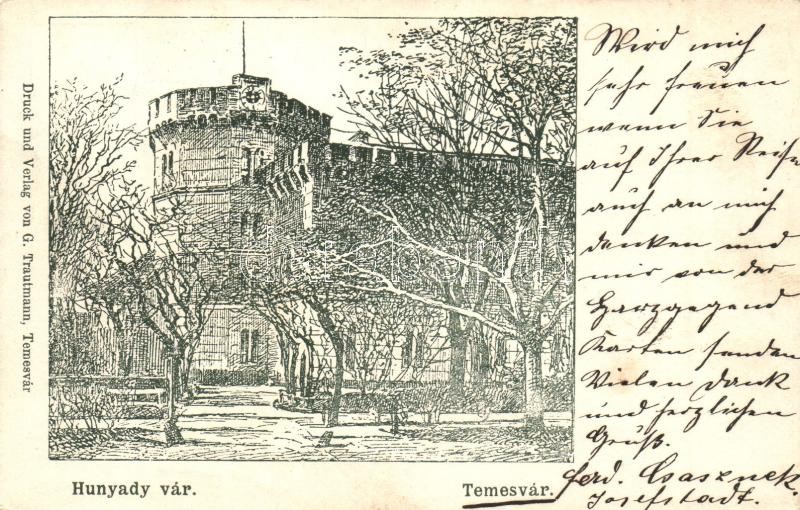 Druck und Verlag von G. Trautmann, Temesvár
Hunyady vár.
Temesvár.
Wird mich
sehr freuen
wenn Sie
auf Ihrer Reise
auch an mich
denken und
mir von der
Harzgegend
Karten senden
Vielen Dank
und herzlichen
Gruß.
ferd. Csasznek.
Josefstadt.